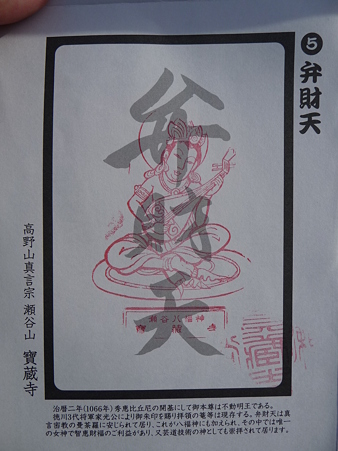 ❺ 弁財天
弁財天
瀬谷八福神
寳蔵寺
高野山真言宗 瀬谷山 寳蔵寺
治暦二年(1066年)秀恵比丘尼の開基にして御本尊は不動明王である。
徳川3代将軍家光公により御朱印を賜り拝領の篭等は現存する。弁財天は真
言密教の曼荼羅に安じられて居り、これが八福神にも加えられ、その中では唯一
の女神で智恵財福のご利益があり、又芸道技術の神としても崇拝されて居ります。